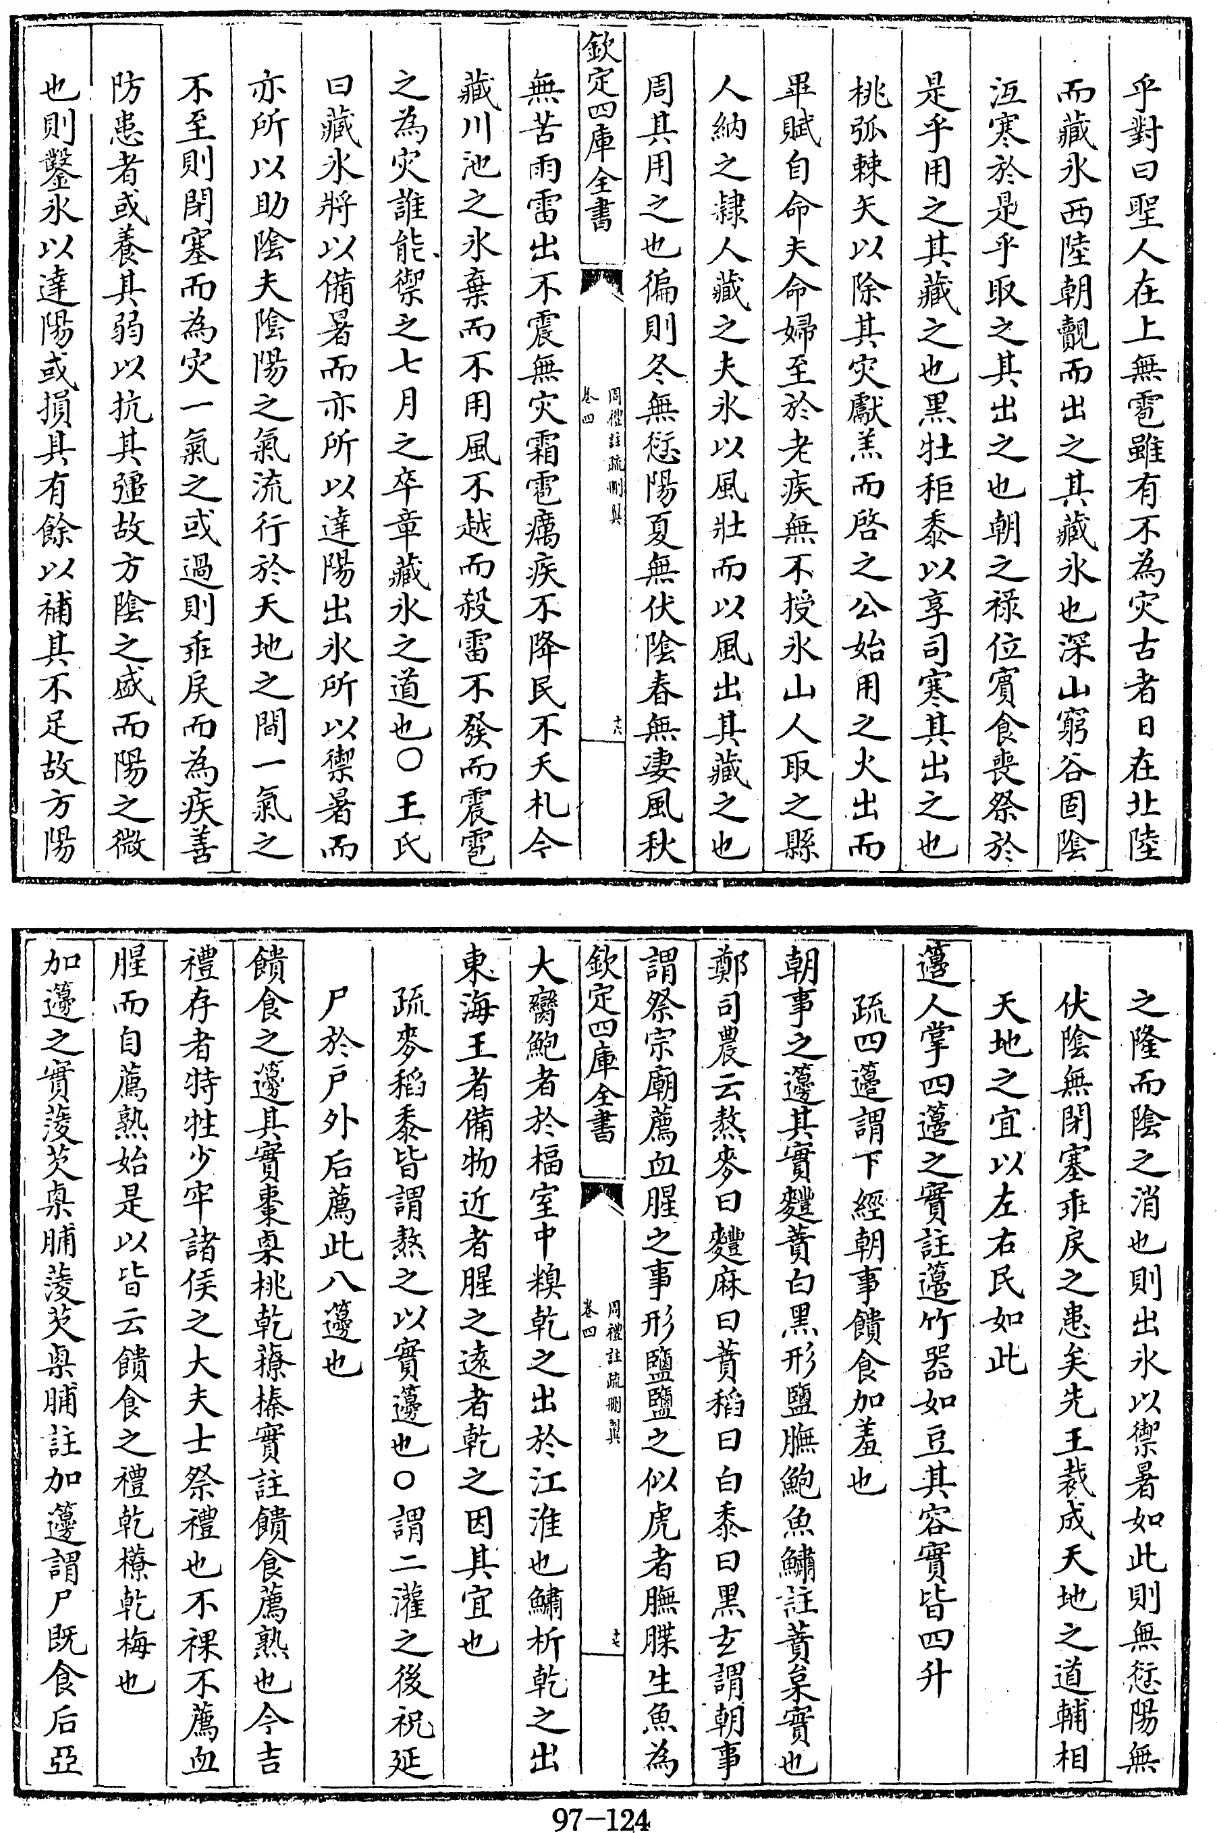 乎對曰聖人在上無雹雖有不為灾古者日在北陸
而藏氷西陸朝覿而出之其藏氷也深山窮谷固陰
沍寒於是乎取之其出之也朝之祿位賓食喪祭於
是乎用之其藏之也黒牡秬黍以享司寒其出之也
桃弧棘矢以除其灾獻羔而啓之公始用之火出而
畢賦自命夫命婦至於老疾無不授氷山人取之縣
人納之隸人藏之夫氷以風壯而以風出其藏之也
周其用之也徧則冬無愆陽夏無伏陰春無凄風秋
欽定四庫全書
周禮註疏刪翼
卷四
十六
無苦雨雷出不震無灾霜雹癘疾不降民不夭札今
藏川池之氷棄而不用風不越而殺雷不發而震雹
之為灾誰能禦之七月之卒章藏氷之道也○王氏
曰藏氷將以備暑而亦所以達陽出氷所以禦暑而
亦所以助陰夫陰陽之氣流行於天地之間一氣之
不至則閉塞而為灾一氣之或過則乖戾而為疾善
防患者或養其弱以抗其彊故方陰之盛而陽之微
也則鑿氷以達陽或損其有餘以補其不足故方陽
之隆而陰之消也則出氷以禦暑如此則無愆陽無
伏陰無閉塞乖戾之患矣先王裁成天地之道輔相
天地之宜以左右民如此
籩人掌四籩之實註籩竹器如豆其容實皆四升
疏四籩謂下經朝事饋食加羞也
朝事之籩其實麷蕡白黑形鹽膴鮑魚鱐註蕡枲實也
鄭司農云熬麥曰麷麻曰蕡稻曰白黍曰黑玄謂朝事
謂祭宗廟薦血腥之事形鹽鹽之似虎者膴䐑生魚為
欽定四庫全書
周禮註疏刪翼
卷四
十七
大臠鮑者於楅室中糗乾之出於江淮也鱐析乾之出
東海王者備物近者腥之遠者乾之因其宜也
疏麥稻黍皆謂熬之以實籩也○謂二灌之後祝延
尸於戶外后薦此八籩也
饋食之籩其實棗㮚桃乾䕩榛實註饋食薦熟也今吉
禮存者特牲少牢諸侯之大夫士祭禮也不祼不薦血
腥而自薦熟始是以皆云饋食之禮乾橑乾梅也
加籩之實蔆芡㮚脯蔆芡㮚脯註加籩謂尸既食后亞
97-124